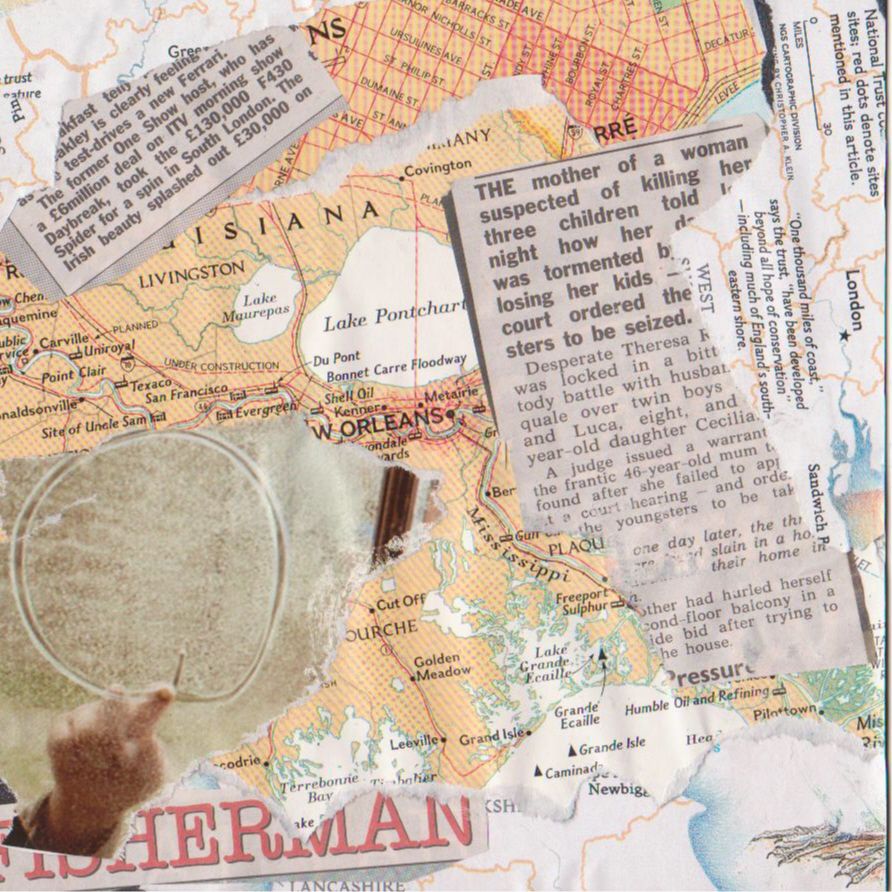 NS
RNOR NICHOLLS ST.
BARRACKS ST.
ADE AVE
URSULINES AV.
ST. PHILIP ST.
DUMAINE ST.
ST. ANN
BOURBON ST.
ROYAL ST
CHARTRES ST.
DECATUR
LEVEE
Gree
trust
eature
akfast
akley is clearly feeling
test-drives a new Ferrari.
The former One Show host, who has
a £6million deal on ITV morning show
Daybreak, took the £130,000 F430
Spider for a spin in South London. The
Irish beauty splashed out £30,000 on
National Trust
sites; red dots denote sites
mentioned in this article.
0
MILES
30
NGS CARTOGRAPHIC DIVISION
BY CHRISTOPHER A. KLEIN
"One thousand miles of coast,"
says the trust, "have been developed
beyond all hope of conservation"
—including much of England's south-
eastern shore.
WEST
London
Sandwich
RRÉ
THE mother of a woman
suspected of killing her
three children told
night how her
was tormented
losing her kids
court ordered the
sters to be seized.
Desperate Theresa
was locked in a
tody battle with
quale over twin boys
and Luca, eight, and
year-old daughter Cecilia
A judge issued a warrant
the frantic 46-year-old mum
found after she failed to
a court hearing – and
the youngsters to be
one day later, the
slain in a
their home in
other had hurled herself
cond-floor balcony in a
ide bid after trying to
he house.
Pressure
MANY
Covington
ISIANA
LIVINGSTON
Lake
Maurepas
Lake Pontchart
PLANNED
UNDER CONSTRUCTION
Du Pont
Bonnet Carre Floodway
Carville
Uniroyal
Point Clair
Texaco
San Francisco
Evergreen
naldsonville
Site of Uncle Sam
Shell Oil
Kenner
Metairie
W ORLEANS
Ber
Mississippi
PLAQU
Freeport
Sulphur
Cut Off
OURCHE
Golden
Meadow
Lake
Grande
Ecaille
Grande
Ecaille
Humble Oil and Refining
Pilottown
Leeville
Grand Isle
Grande Isle
Caminad
Hea
codrie
Terrebonne
Bay
Newbigg
ake
FISHERMAN
KSH
LANCASHIRE